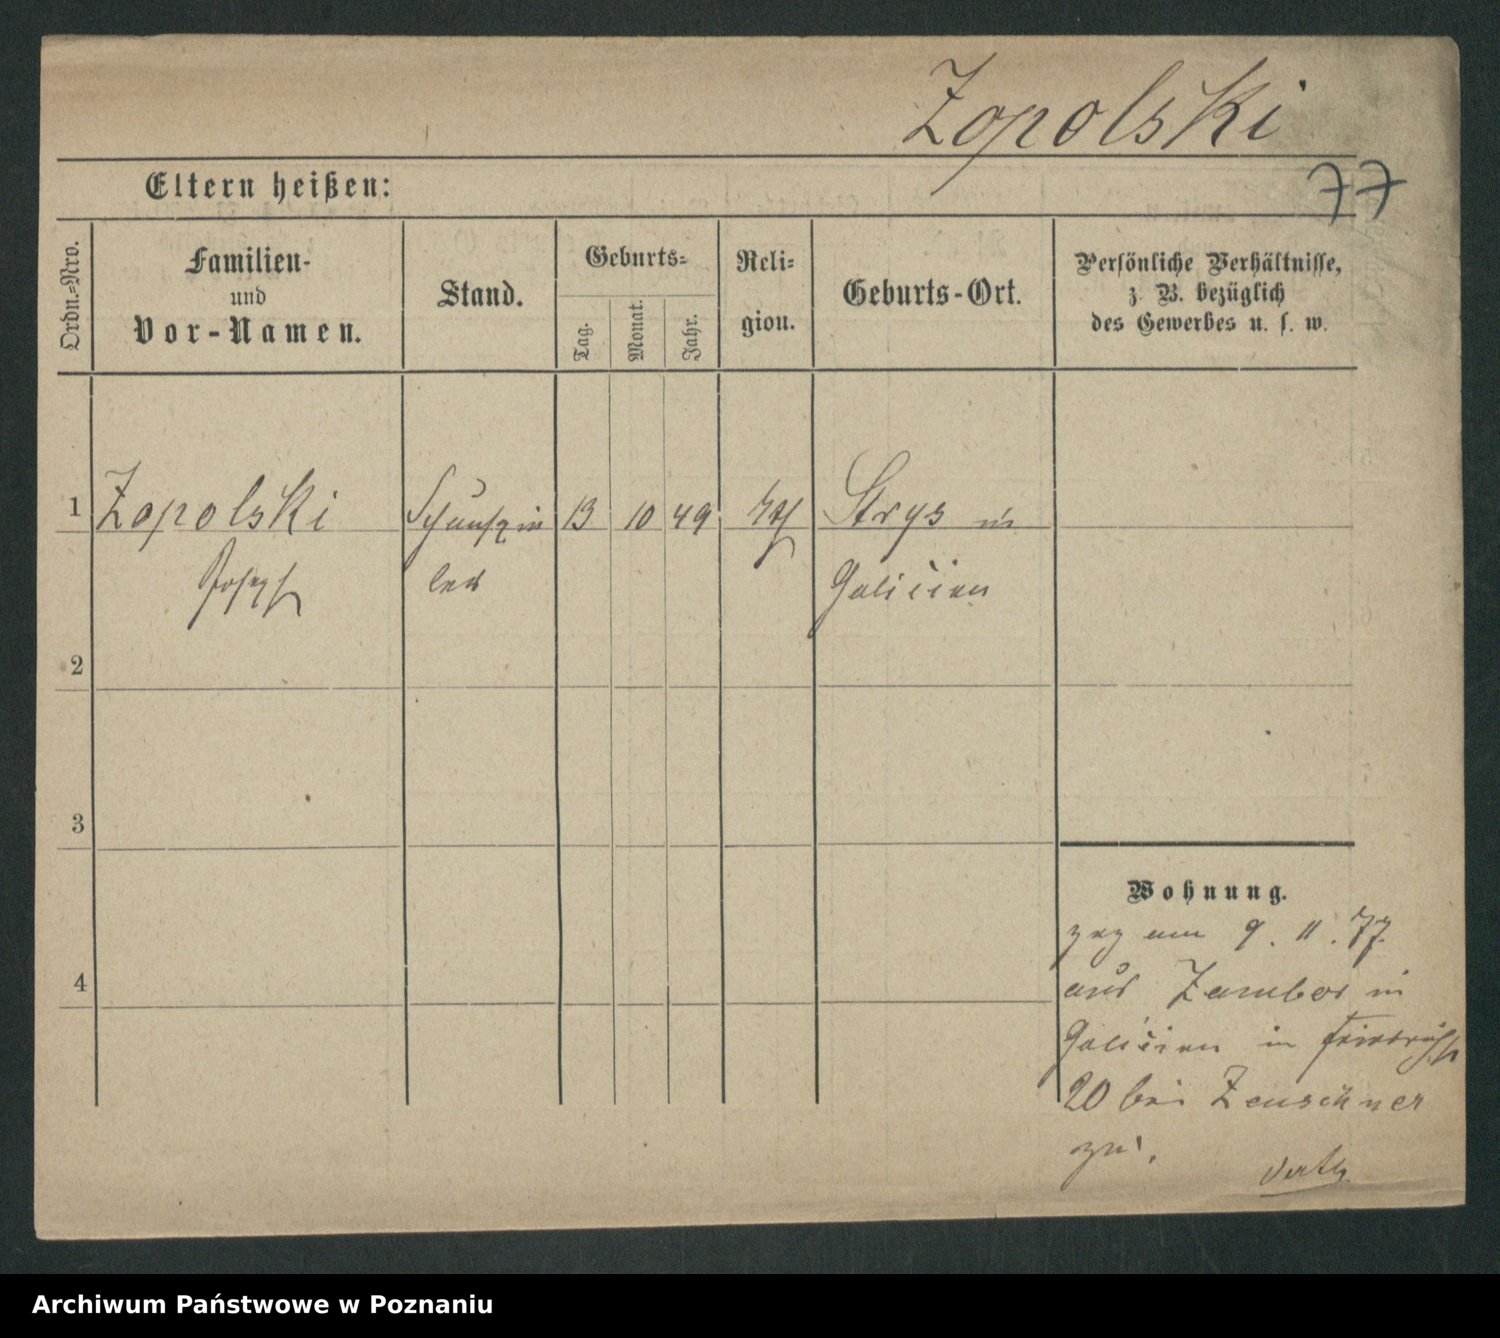 Zopolski
77
Eltern heißen:
Ordn.=Nro.
Familien-
und
Vor-Namen.
Stand.
Geburts=
Tag.
Monat.
Jahr.
Reli=
gion.
Geburts-Ort.
Persönliche Verhältnisse,
z. B. bezüglich
des Gewerbes u. s. w.
1 Zopolski Schauspie 13 10 49 Strys in
Joseph ler Galicien
2
3
4
Wohnung.
zog am 9. 11. 77.
aus Zambor in
Galicien in Friedrichst
20 bei Zeuschner
zu.
Archiwum Państwowe w Poznaniu